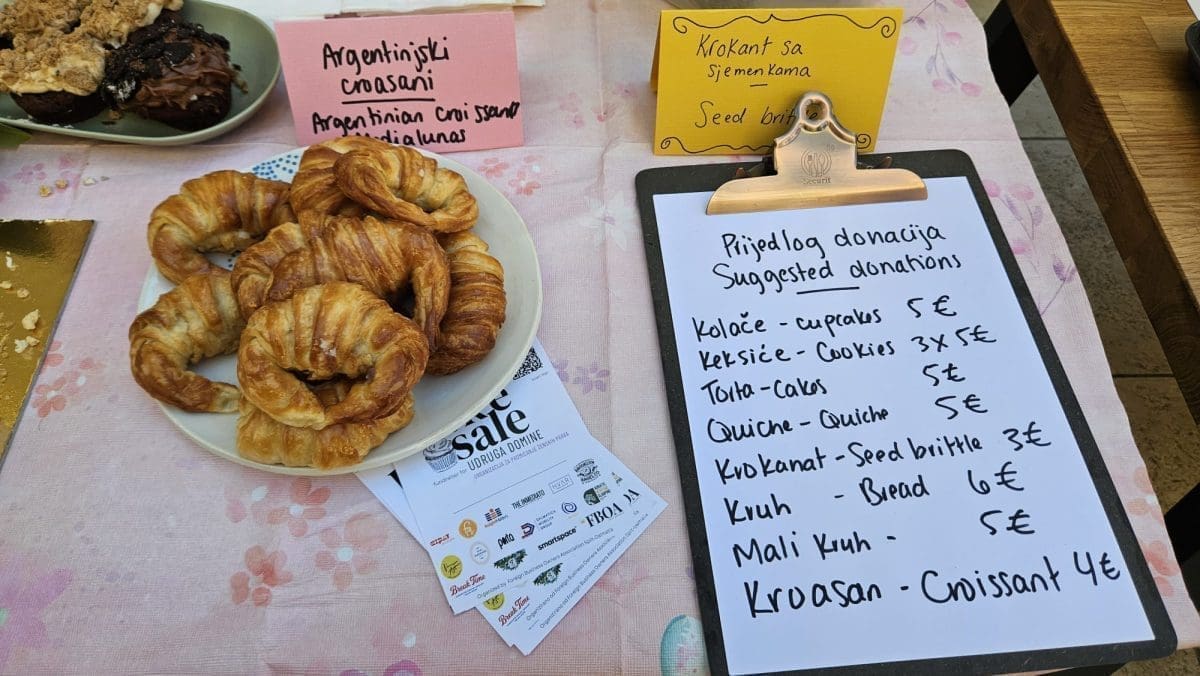 Argentinjski
croasani
Argentinian Croissano
Medialunas
Krokant sa
sjemenkama
Seed brittle
Securit
Prijedlog donacija
Suggested donations
Kolače - cupcakes 5€
Keksiće - Cookies 3x5€
Torta - Cakes 5€
Quiche - Quiche 5€
Krokanat - Seed brittle 3€
Kruh - Bread 6€
Mali Kruh - 5€
Kroasan - Croissant 4€
sale
fundraiser for UDRUGA DOMINE
ORGANIZACIJA ZA PROMICANJE ŽENSKIH PRAVA
THE INMEDIATO
HVAR
smartspace
FBOA
Break Time
Organized by Foreign Business Owners Association Split-Dalmatia
Break Time